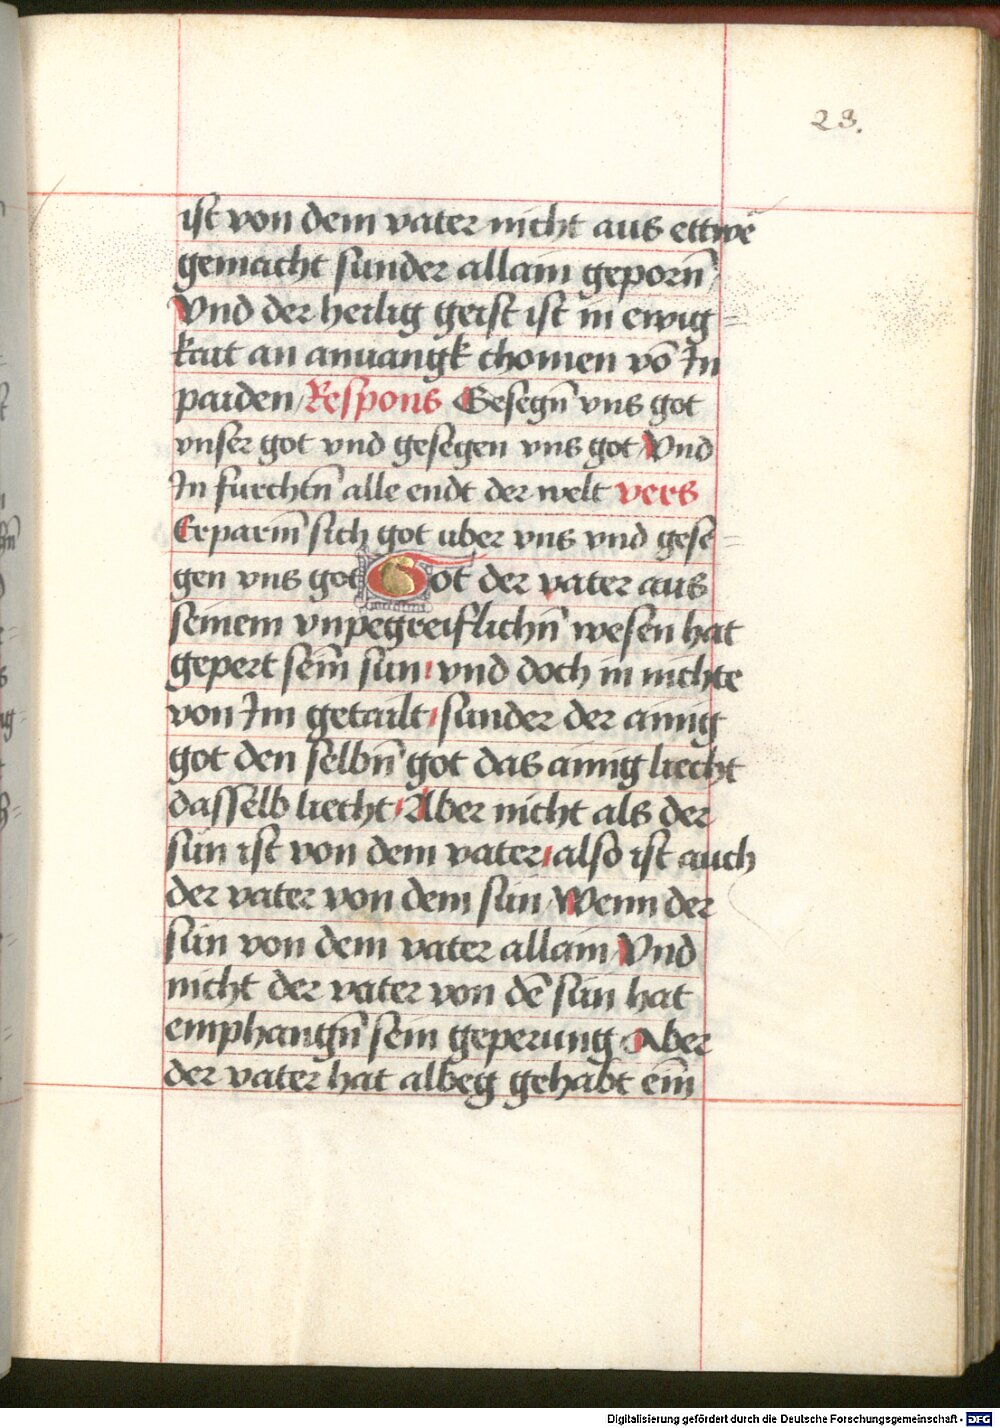 23.
ist von dem vater nicht aus ettwe
gemacht sunder allain geporn̄
Vnd der heilig geist ist in ewig=
kait an anuangk chomen vō In
paiden / Respons Gesegn̄ vns got
vnser got vnd gesegen vns got Vnd
In furchtn̄ alle endt der welt vers
Erparm̄ sich got uber vns vnd gese=
gen vns got Got der vater aus
seinem vnpegreiflichn̄ wesen hat
gepert sein̄ sun / vnd doch in nichte
von Im getailt / sunder der ainig
got den selbn̄ got das ainig liecht
dasselb liecht / Aber nicht als der
sun ist von dem vater / also ist auch
der vater von dem sun / Wenn der
sun von dem vater allain / Vnd
nicht der vater von dē sun hat
emphangn̄ sein geperung Aber
der vater hat albeg gehabt ein̄
Digitalisierung gefördert durch die Deutsche Forschungsgemeinschaft - DFG